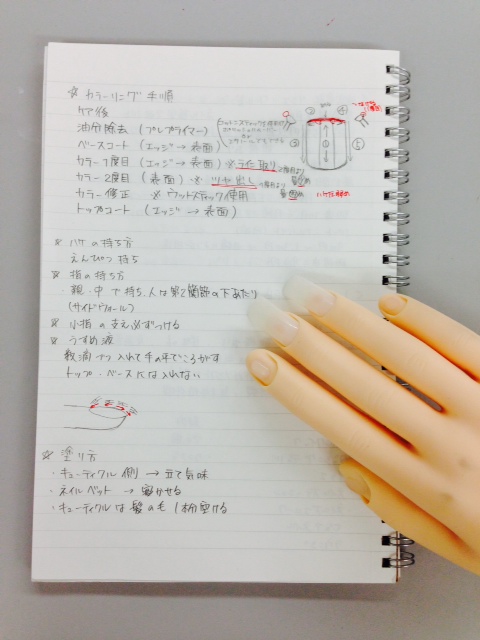 ☆ カラーリング手順
ケア後
油分除去 (プレプライマー)
ベースコート (エッジ → 表面)
カラー1度目 (エッジ → 表面) ※ うた取り
カラー2度目 (表面) ※ ツヤ出し
カラー修正 ※ ウッドスティック使用
トップコート (エッジ → 表面)
① ② ③ ④ ⑤
☆ ハケの持ち方
えんぴつ持ち
☆ 指の持ち方
・親・中で持ち、人は第2関節の下あたり
(サイドウォール)
☆ 小指の支え必ずつける
☆ うすめ液
数滴づつ入れて手の平でころがす
トップ・ベースには入れない
☆ 塗り方
・キューティクル側 → 立て気味
・ネイルベット → 寝かせる
・キューティクルは髪の毛1本分空ける